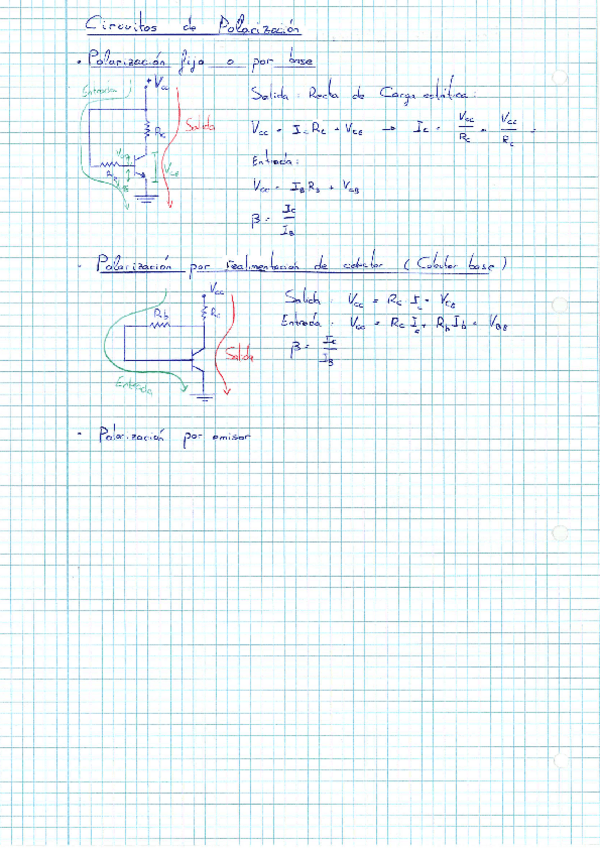 Circuitos de Polarización
· Polarización fija o por base
Vcc
Entrada
Salida
Rc
Salida: Recta de Carga estática:
Vcc = IcRc + VCE → Ic = Vcc/Rc - Vcc/Rc
Entrada:
Vcc = IB RB + VBB
β = Ic/IB
· Polarización por realimentación de colector (Colector base)
Vcc
Rb
Rc
Salida
Entrada
Salida: Vcc = Rc Ic + VCB
Entrada: Vcc = Rc Ic + Rb Ib + VBB
β = Ic/IB
· Polarización por emisor